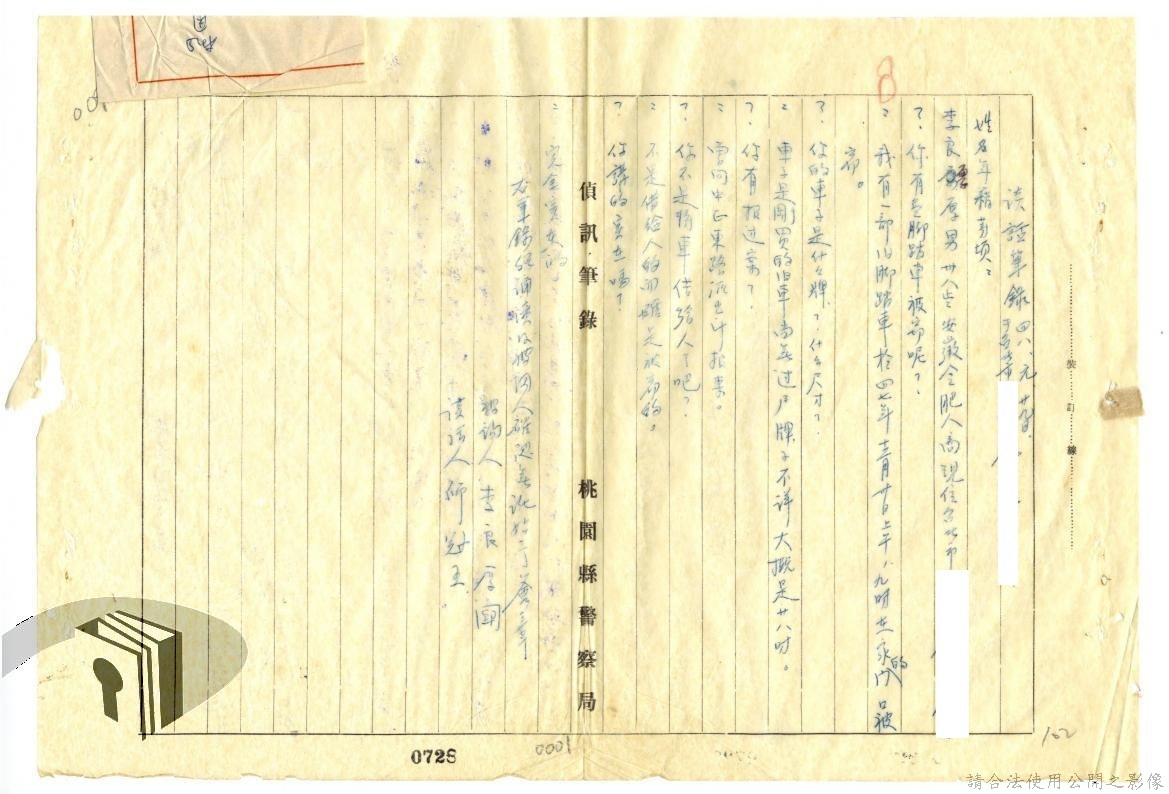 談話筆錄 四八、元、廿九日
姓名年籍等項：
李良厚 男 廿八才 安徽合肥人 商 現住台北市
？、你有壹脚踏車被竊呢？
：我有一部旧脚踏車於四七年 月廿日上午八、九時在家的門口被
竊。
？你的車子是什么牌？什么尺寸？
：車子是剛買的旧車尚無过户牌子不详大概是廿八吋。
？你有报过案？
：曾向中正東路派出所报案。
？你不是将車借給人了吧？
：不是借給人的而確是被竊的。
？你講的實在嗎？
：完全實在的
右筆錄經誦讀及被詢人確認無訛始予簽章
被詢人 李良厚
談話人 師
偵訊筆錄 桃園縣警察局
裝訂線
8
0728
0001
102
請合法使用公開之影像